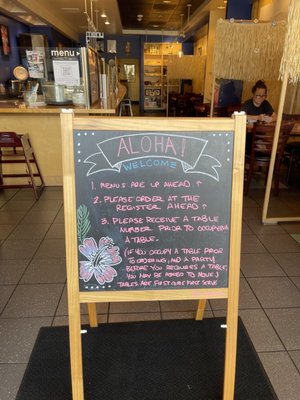 menu
ALOHA!
WELCOME
1. MENUS ARE UP AHEAD ↑
2. PLEASE ORDER AT THE
REGISTER AHEAD ↑
3. PLEASE RECEIVE A TABLE
NUMBER PRIOR TO OCCUPYING
A TABLE.
(IF YOU OCCUPY A TABLE PRIOR
TO ORDERING, AND A PARTY
BEFORE YOU REQUIRES A TABLE,
YOU MAY BE ASKED TO MOVE.)
TABLES ARE FIRST COME FIRST SERVE